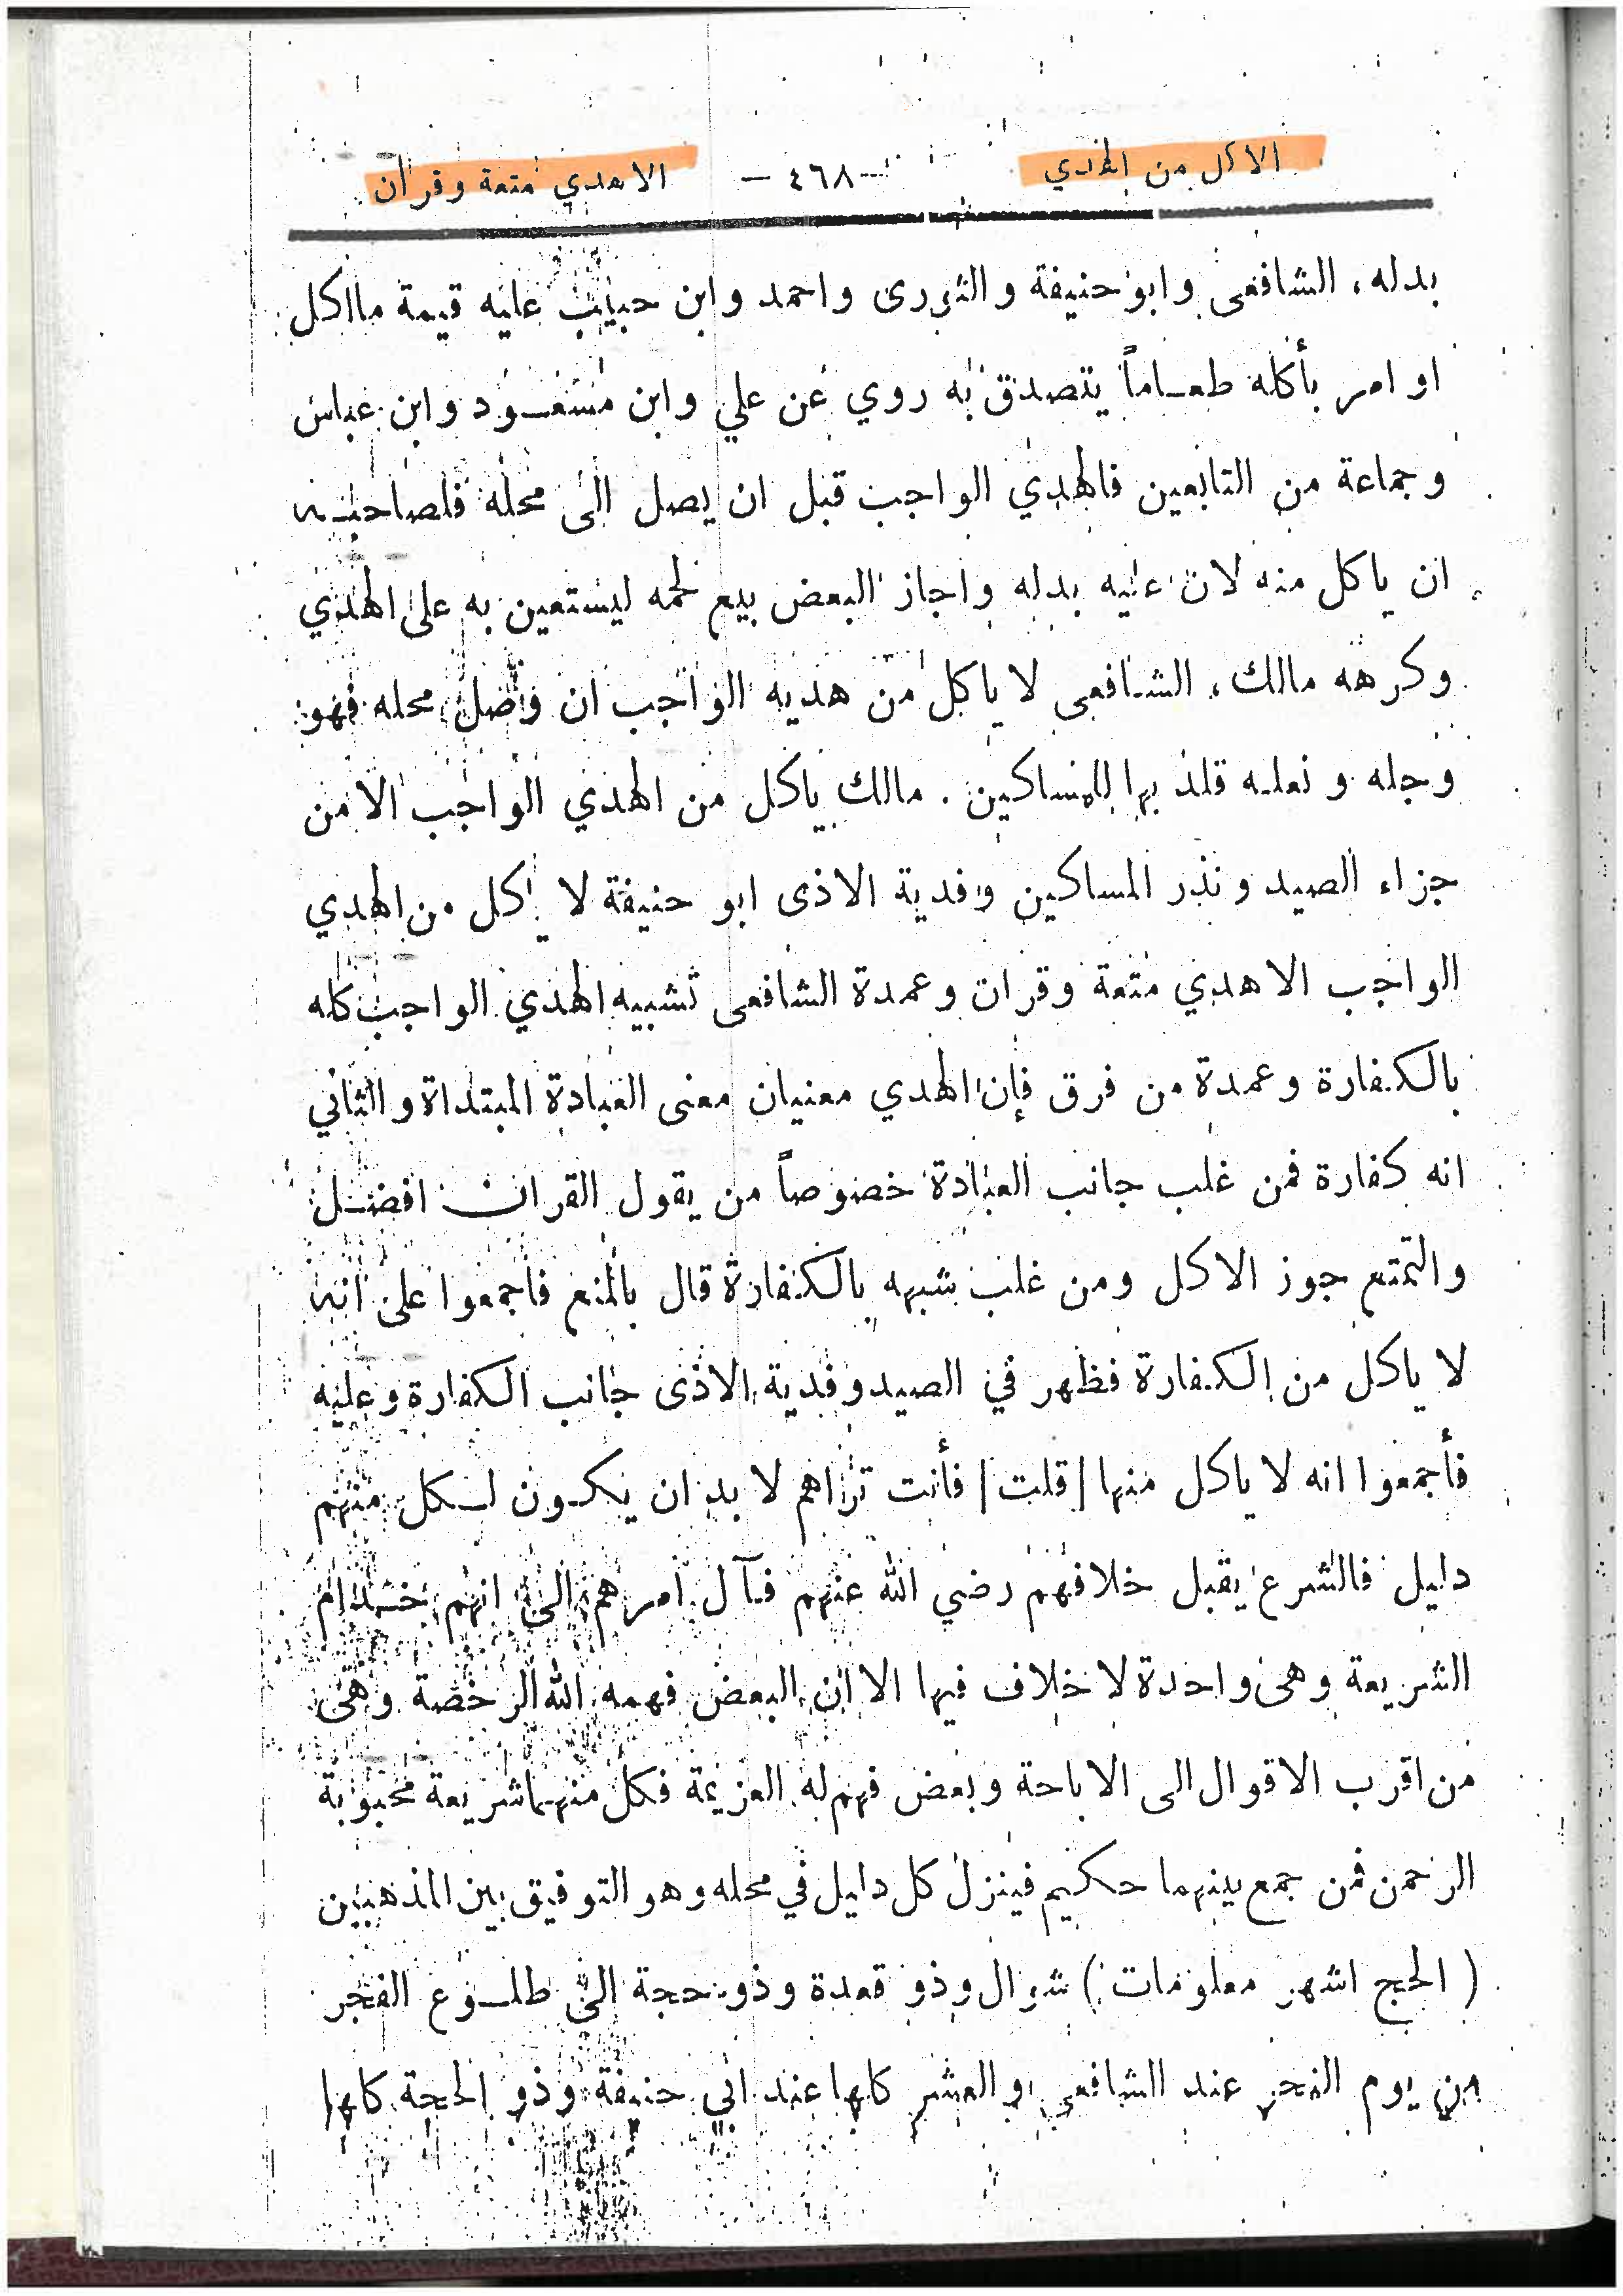 الاكل من الهدي — ٤٦٨ — الاهدي متعة وقران
بدله، الشافعى وابو حنيفة والثورى واحمد وابن حبيب عليه قيمة مااكل
او امر بأكله طعاماً يتصدق به روي عن علي وابن مسعود وابن عباس
وجماعة من التابعين فالهدي الواجب قبل ان يصل الى محله فلصاحبه
ان ياكل منه لان عليه بدله واجاز البعض بيع لحمه ليستعين به على الهدي
وكرهه مالك، الشافعى لا ياكل من هديه الواجب ان وصل محله فهو
وجله و نعله قلد بها للمساكين . مالك ياكل من الهدي الواجب الا من
جزاء الصيد و نذر المساكين وفدية الاذى ابو حنيفة لا ياكل من الهدي
الواجب الا هدي متعة وقران وعمدة الشافعى تشبيه الهدي الواجب كله
بالكفارة وعمدة من فرق فإن الهدي معنيان معنى العبادة المبتداة والثاني
انه كفارة فمن غلب جانب العبادة خصوصاً من يقول القران افضل
والتمتع جوز الاكل ومن غلب شبهه بالكفارة قال بالمنع فأجمعوا على انه
لا ياكل من الكفارة فظهر في الصيد وفدية الاذى جانب الكفارة وعليه
فأجمعوا انه لا ياكل منها / قلت / فأنت تراهم لا بد ان يكون لكل منهم
دليل فالشرع يقبل خلافهم رضي الله عنهم فآل امرهم الى انهم خدام
الشريعة وهى واحدة لا خلاف فيها الا ان البعض فهمه الله الرخصة وهى
من اقرب الاقوال الى الاباحة وبعض فهم له العزيمة فكل منهما شريعة محبوبة
الرحمن فمن جمع بينهما حكيم فينزل كل دليل في محله وهو التوفيق بين المذهبين
( الحج اشهر معلومات ) شوال وذو قعدة وذو حجة الى طلوع الفجر
من يوم النحر عند الشافعي او العشر كلها عند ابي حنيفة وذو الحجة كلها